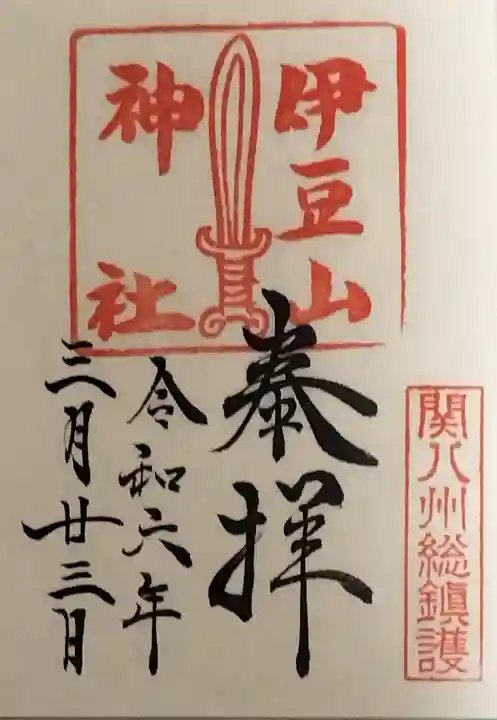 伊豆山
神社
関八州総鎮護
奉拝
令和六年
三月廿三日